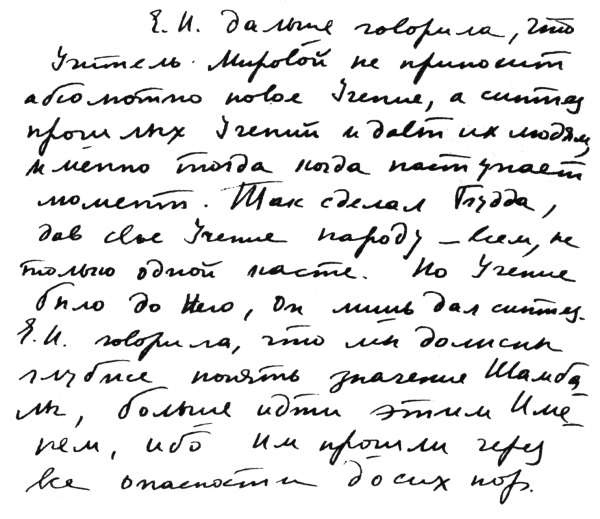 Е. И. дальше говорила, что
Учитель Мировой не приносит
абсолютно новое Учение, а синтез
прошлых Учений и дает их людям,
именно тогда когда наступает
момент. Так сделал Будда,
дав свое Учение народу – всем, не
только одной касте. Но Учение
было до Него, Он лишь дал синтез.
Е. И. говорила, что мы должны
глубже понять значение Шамба-
лы, больше идти этим Име-
нем, ибо им прошли через
все опасности до сих пор.